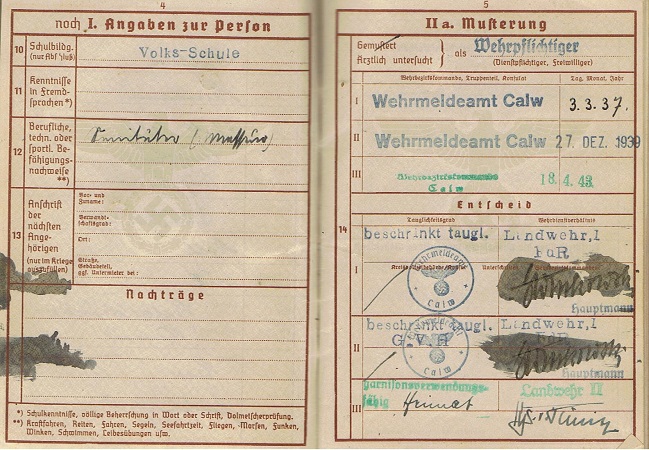 4
noch I. Angaben zur Person
10 Schulbildg.
(nur Abschluß)
Volks-Schule
11 Kenntnisse
in Fremd-
sprachen*)
12 Berufliche,
techn. oder
sportl. Be-
fähigungs-
nachweise
**)
Sanitäter (Masseur)
13 Anschrift
der
nächsten
Ange-
hörigen
(nur im Kriege
auszufüllen)
Vor- und
Zuname:
Verwandt-
schaftsgrad:
Ort:
Straße,
Gebäudeteil,
ggf. Untermieter bei:
Nachträge
*) Schulkenntnisse, völlige Beherrschung in Wort oder Schrift, Dolmetscherprüfung.
**) Kraftfahren, Reiten, Fahren, Segeln, Seefahrtzeit, Fliegen, Morsen, Funken,
Winken, Schwimmen, Leibesübungen usw.
5
II a. Musterung
Gemustert
Ärztlich untersucht } als Wehrpflichtiger
(Dienstpflichtiger, Freiwilliger)
Wehrbezirkskommando, Truppenteil, Konsulat
Tag, Monat, Jahr
I Wehrmeldeamt Calw 3.3.37.
II Wehrmeldeamt Calw 27. DEZ. 1939
III Wehrbezirkskommando
Calw
18.4.43
Entscheid
14
Tauglichkeitsgrad
Wehrdienstverhältnis
beschränkt taugl. Landwehr, I
I
Unterschrift
Calw
Hauptmann
beschränkt taugl. Landwehr, I
G.V.H
II
Calw
Hauptmann
garnisonsverwendungs-
fähig Heimat
Landwehr II
III